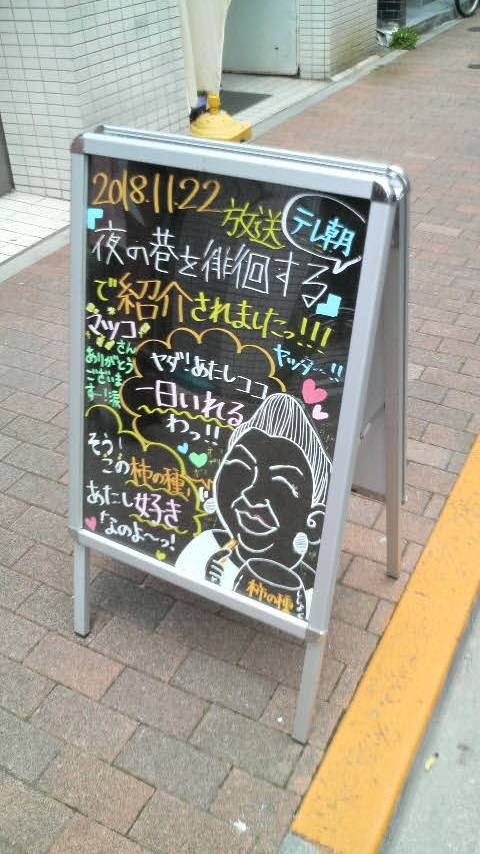 2018.11.22 放送 テレ朝
『夜の巷を徘徊する』
で紹介されましたっ!!!
ヤッダー!!
マツコさん
ありがとう
ございま
すー!涙
ヤダ!あたしココ
一日いれる
わっ!!
そう!
この柿の種!
あたし好き
なのよ〜っ!
柿の種